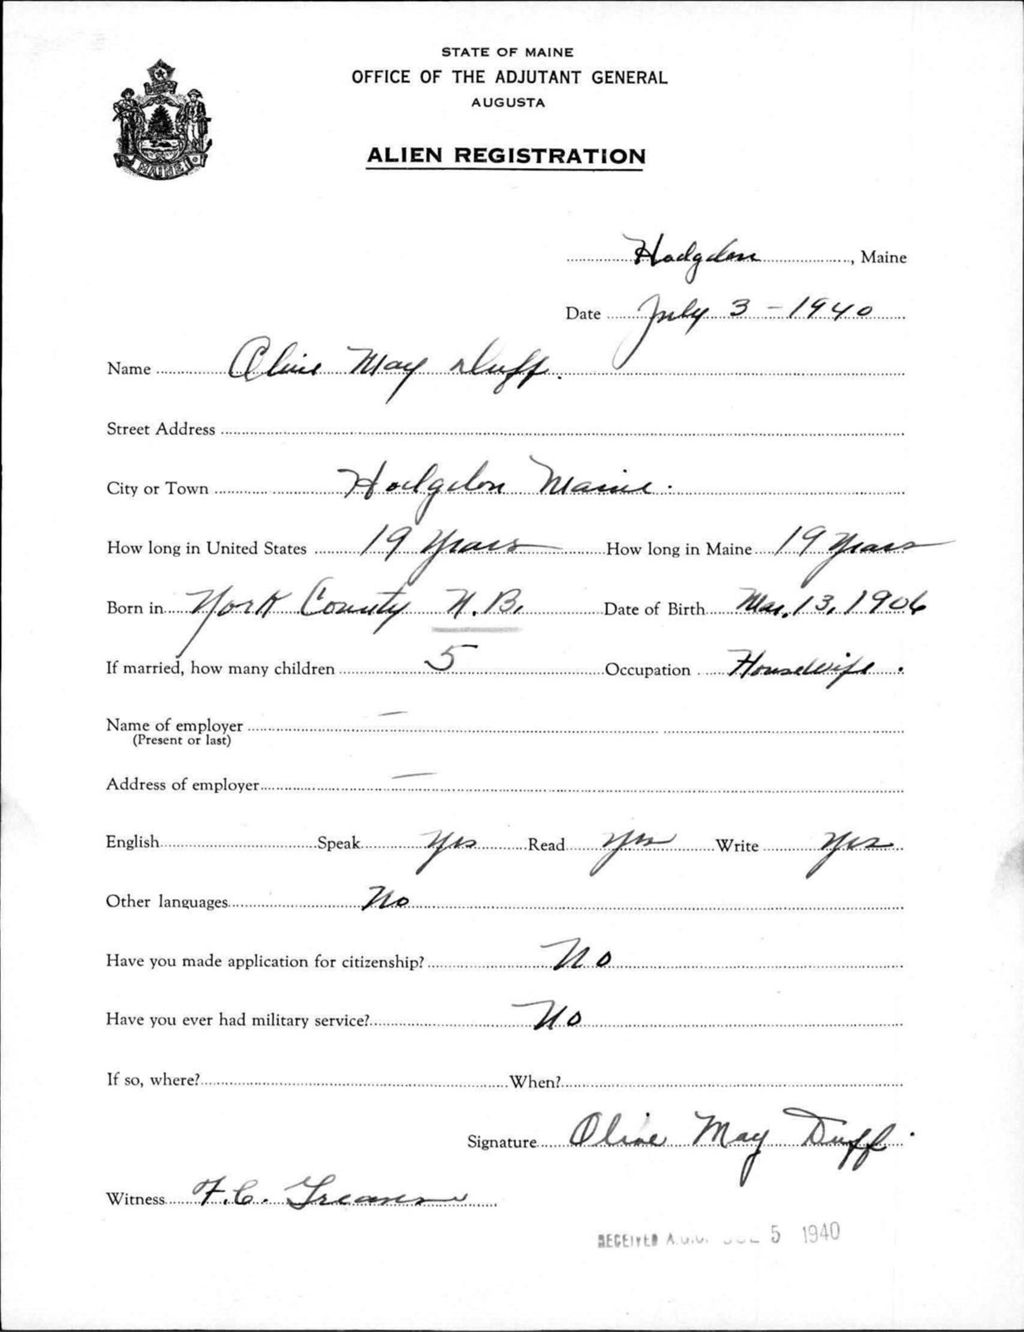 STATE OF MAINE
OFFICE OF THE ADJUTANT GENERAL
AUGUSTA
ALIEN REGISTRATION
MAINE
Hodgdon, Maine
Date July 3 - 1940
Name Olive May Duff.
Street Address
City or Town Hodgdon Maine.
How long in United States 19 Years How long in Maine 19 Years
Born in York County N.B. Date of Birth Mar. 13, 1906
If married, how many children 5 Occupation Housewife.
Name of employer —
(Present or last)
Address of employer —
English Speak Yes Read Yes Write Yes
Other languages No
Have you made application for citizenship? No
Have you ever had military service? No
If so, where? When?
Signature Olive May Duff.
Witness F.C.
RECEIVED A.G.O. 5 1940